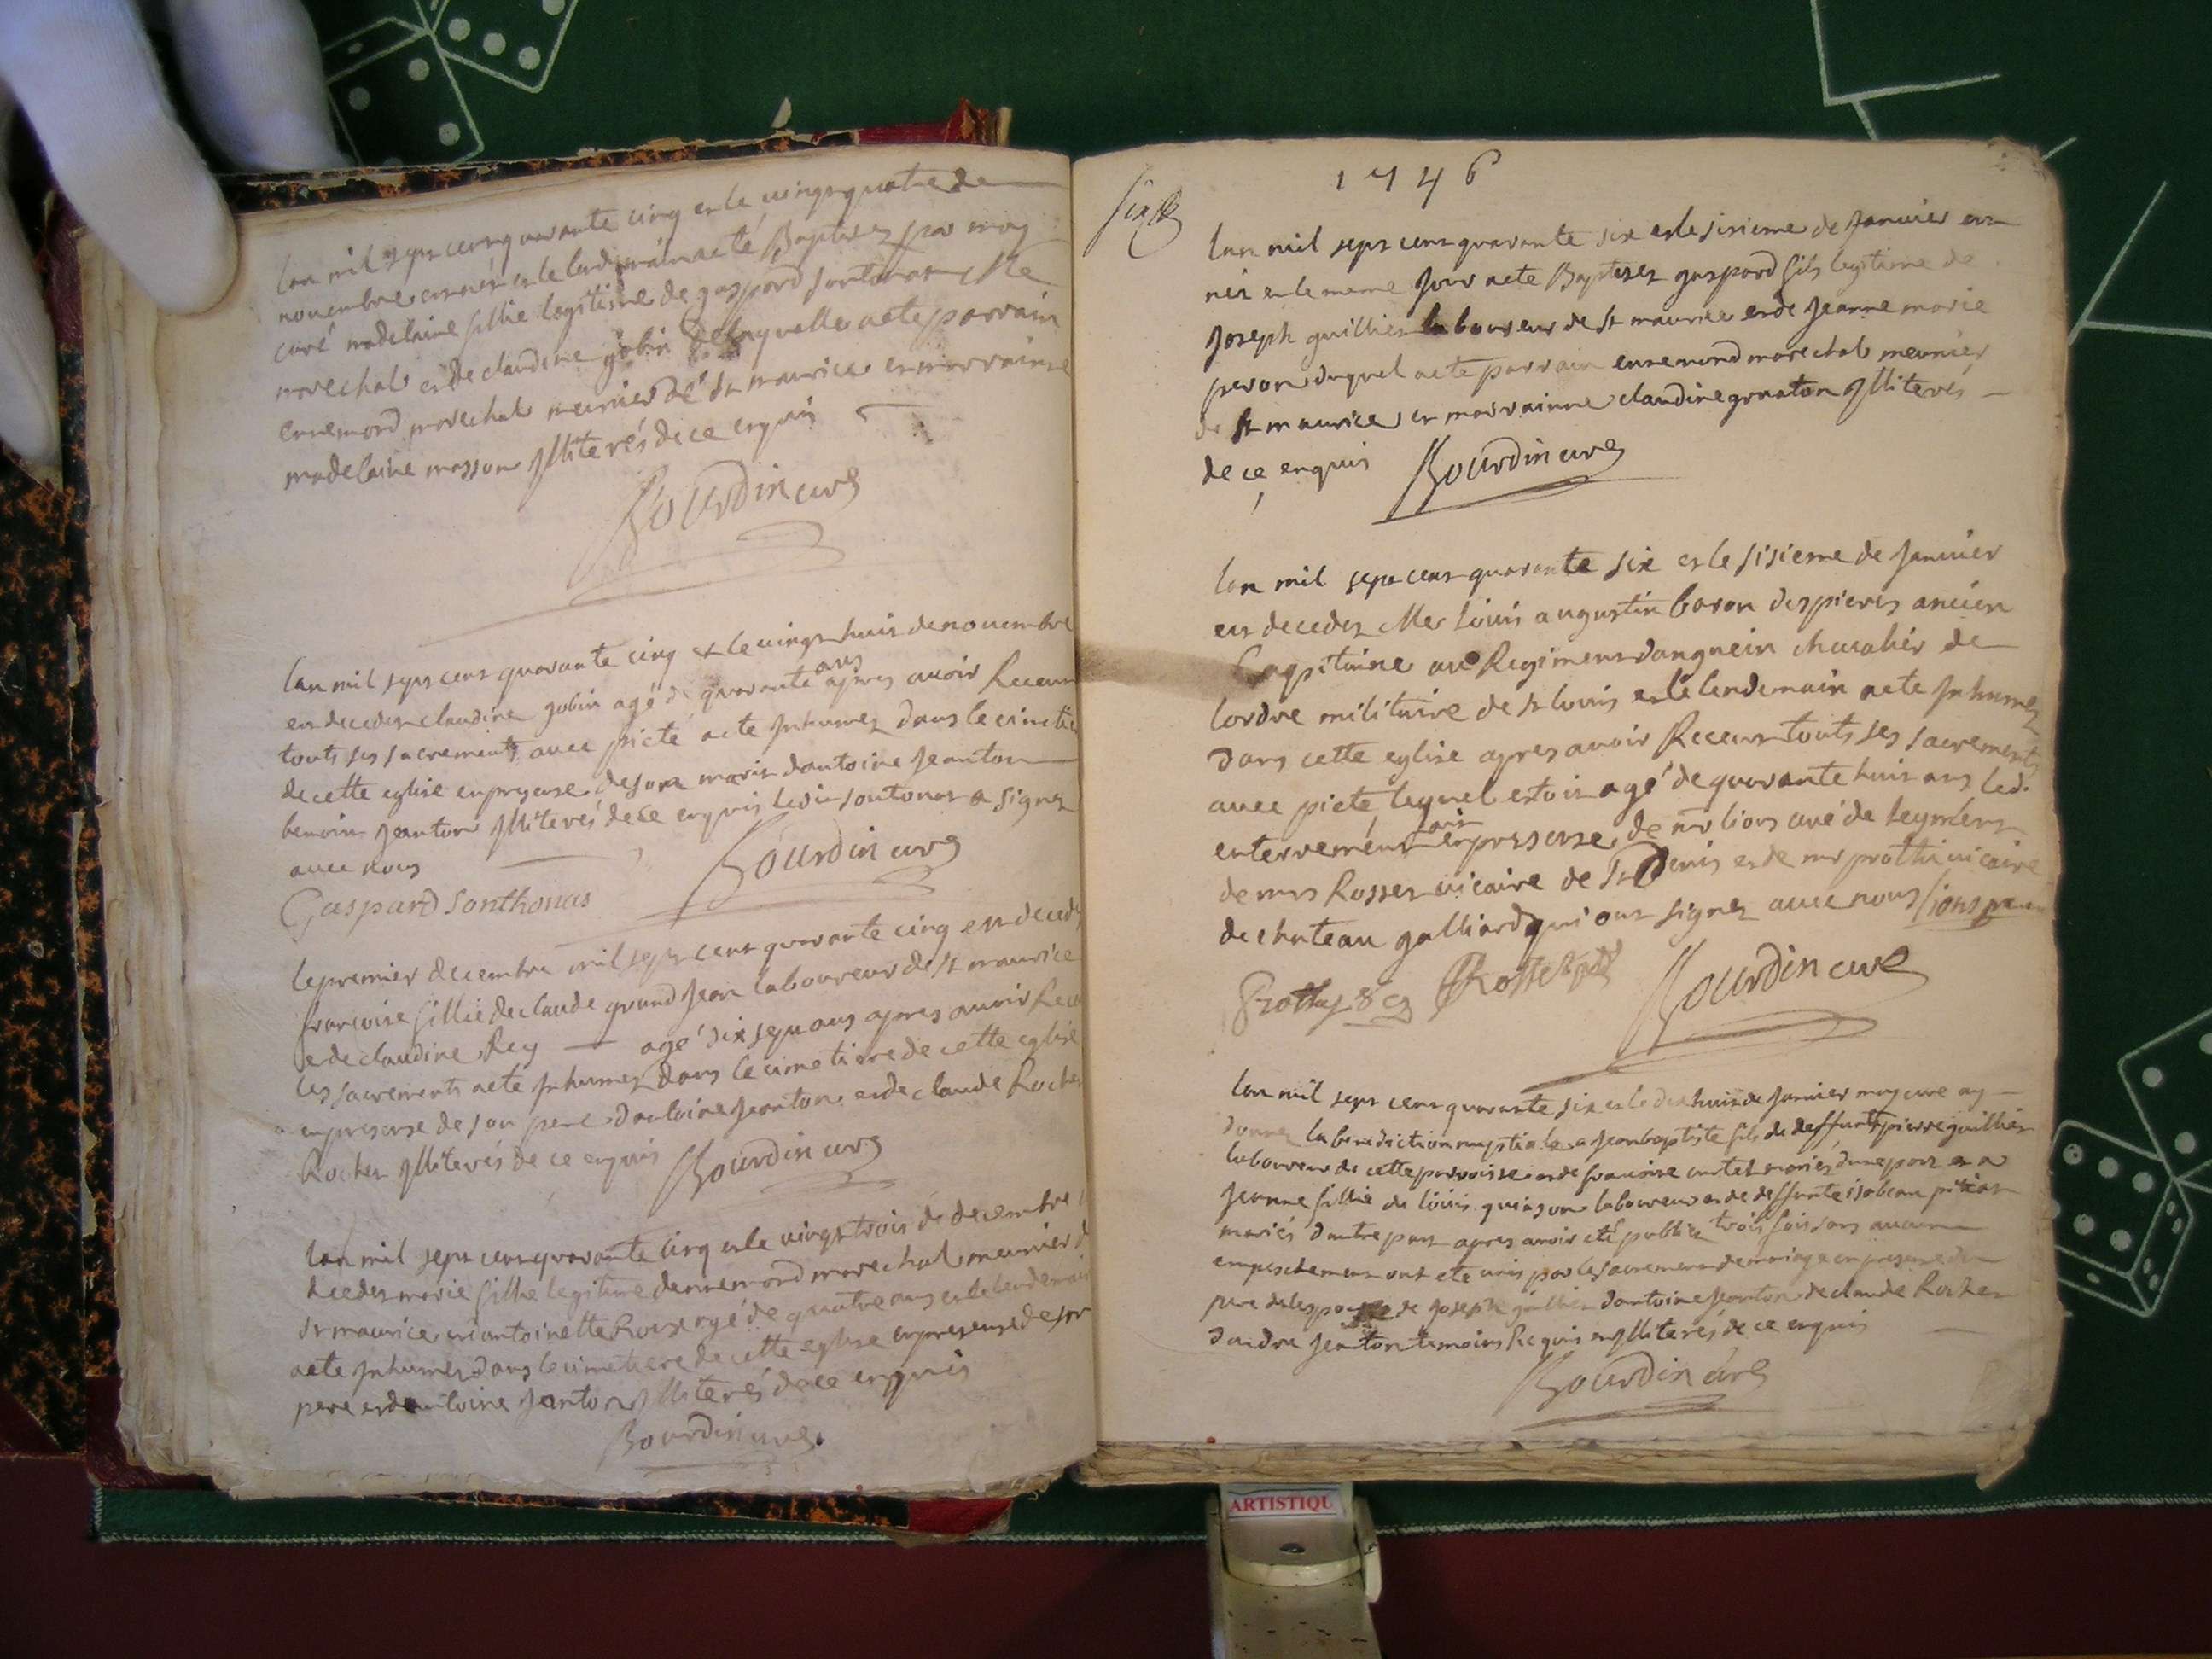 lan mil sept cens quarante cinq et le vingt quatre de
novembre est née et le lendemain a eté Baptisez par moy
curé madelaine fillie legitime de gaspard sontonas Me
marechal et de claudine gobin de laquelle a eté parrain
ennemond marechal meunier de st maurice et marrainne
madelaine masson illiterés de ce enquis
Bourdin curé
lan mil sept cens quarante cinq et le vingt huit de novembre
est decedez claudine gobin agé de quarante ans apres avoir Receu
touts ses sacrements avec pieté a eté Inhumez dans le cimetie
de cette eglise en presense de son maris dantoine Jeanton
benoin Jeanton illiterés de ce enquis ledit sontonas a signez
avec nous
Gaspard Sonthonas Bourdin curé
le premier decembre mil sept cens quarante cinq est deced
francoise fillie de claude grand Jean laboureur de st maurice
et de claudine Rey agé dix sept ans apres avoir Rece
les sacrements a eté Inhumez dans le cimetiere de cette eglise
en presense de son pere dantoine Jeanton et de claude Rocher
Rocher illiterés de ce enquis Bourdin curé
lan mil sept cens quarante cinq et le vingt trois de decembre
decedez marie fillie legitime dennemond marechal meunier d
st maurice et antoinette Roux agé de quatre ans et le lendemain
a eté Inhumez dans le cimetiere de cette eglise en presense de son
pere et dantoine Jeanton illiterés de ce enquis
Bourdin curé
1746
lan mil sept cens quarante six et le sisieme de Janvier est
nez et le meme Jour a eté Baptisez gaspard fils legitime de
Joseph guillier laboureur de st maurice et de Jeanne marie
peron duquel a eté parrain ennemond marechal meunier
de st maurice et marrainne claudine gonaton illiterés
de ce enquis Bourdin curé
lan mil sept cens quarante six et le sisieme de Janvier
est decedez Mer louis augustin baron despieres ancien
Capitaine au Regiment danguein chevalier de
lordre militaire de st louis et le lendemain a eté Inhumez
dans cette eglise apres avoir Receu touts ses sacrements
avec pieté lequel estoit agé de quarante huit ans led.
enterrement fait en presense de mr lions curé de leyment
de mrs Rosset vicaire de St Denis et de mr prothi vicaire
de chateau galliard qui ont signez avec nous lions
Prothy Rosset Bourdin curé
lan mil sept cens quarante six et le dix huit de Janvier moy curé ay
donnez la benediction nuptiale a Jean baptiste fils de deffunt pierre guillier
laboureur de cette parroisse et de francoise mariés dune part et a
Jeanne fillie de louis guiason laboureur et de deffunte isabeau
mariés dautre part apres avoir eté publiez trois fois sans aucun
empeschement ont eté unis par le sacrement de mariage en presense du
pere de lespouse de Joseph guillier dantoine Jeanton de claude Rocher
dandre Jeanton temoins Requis et illiterés de ce enquis
Bourdin curé
ARTISTIQU